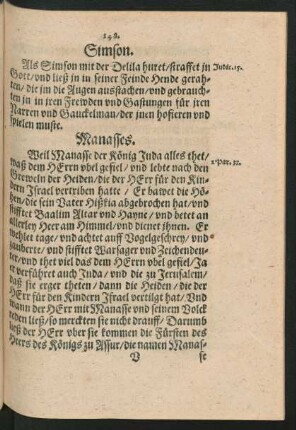 148.
Simson.
Als Simson mit der Delila huret/straffet jn
Gott/vnd ließ jn in seiner Feinde Hende gerah-
ten/die jm die Augen ausstachen/vnd gebrauch-
ten jn in jren Frewden vnd Gastungen für jren
Narren vnd Gauckelman/der jnen hofieren vnd
spielen muste.
Judic. 15.
Manasses.
Weil Manasse der König Juda alles thet/
was dem HErrn vbel gefiel/vnd lebte nach den
Greweln der Heiden/die der HErr für den Kin-
dern Israel vertriben hatte/Er bawet die Hö-
hen/die sein Vater Hißkia abgebrochen hat/vnd
stifftet Baalim Altar vnd Hayne/vnd betet an
allerley Heer am Himmel/vnd dienet jhnen. Er
wehlet tage/vnd achtet auff Vogelgeschrey/vnd
zauberte/vnd stifftet Warsager vnd Zeichenden-
ter/vnd thet viel das dem HErrn vbel gefiel/Ja
er verführet auch Juda/vnd die zu Jerusalem/
daß sie erger theten/dann die Heiden/die der
HErr für den Kindern Israel vertilgt hat/Vnd
wann der HErr mit Manasse vnd seinem Volck
reden ließ/so merckten sie nicht drauff/Darumb
ließ der HErr vber sie kommen die Fürsten des
Heers des Königs zu Assur/die namen Manas-
2 Par. 33.
V se